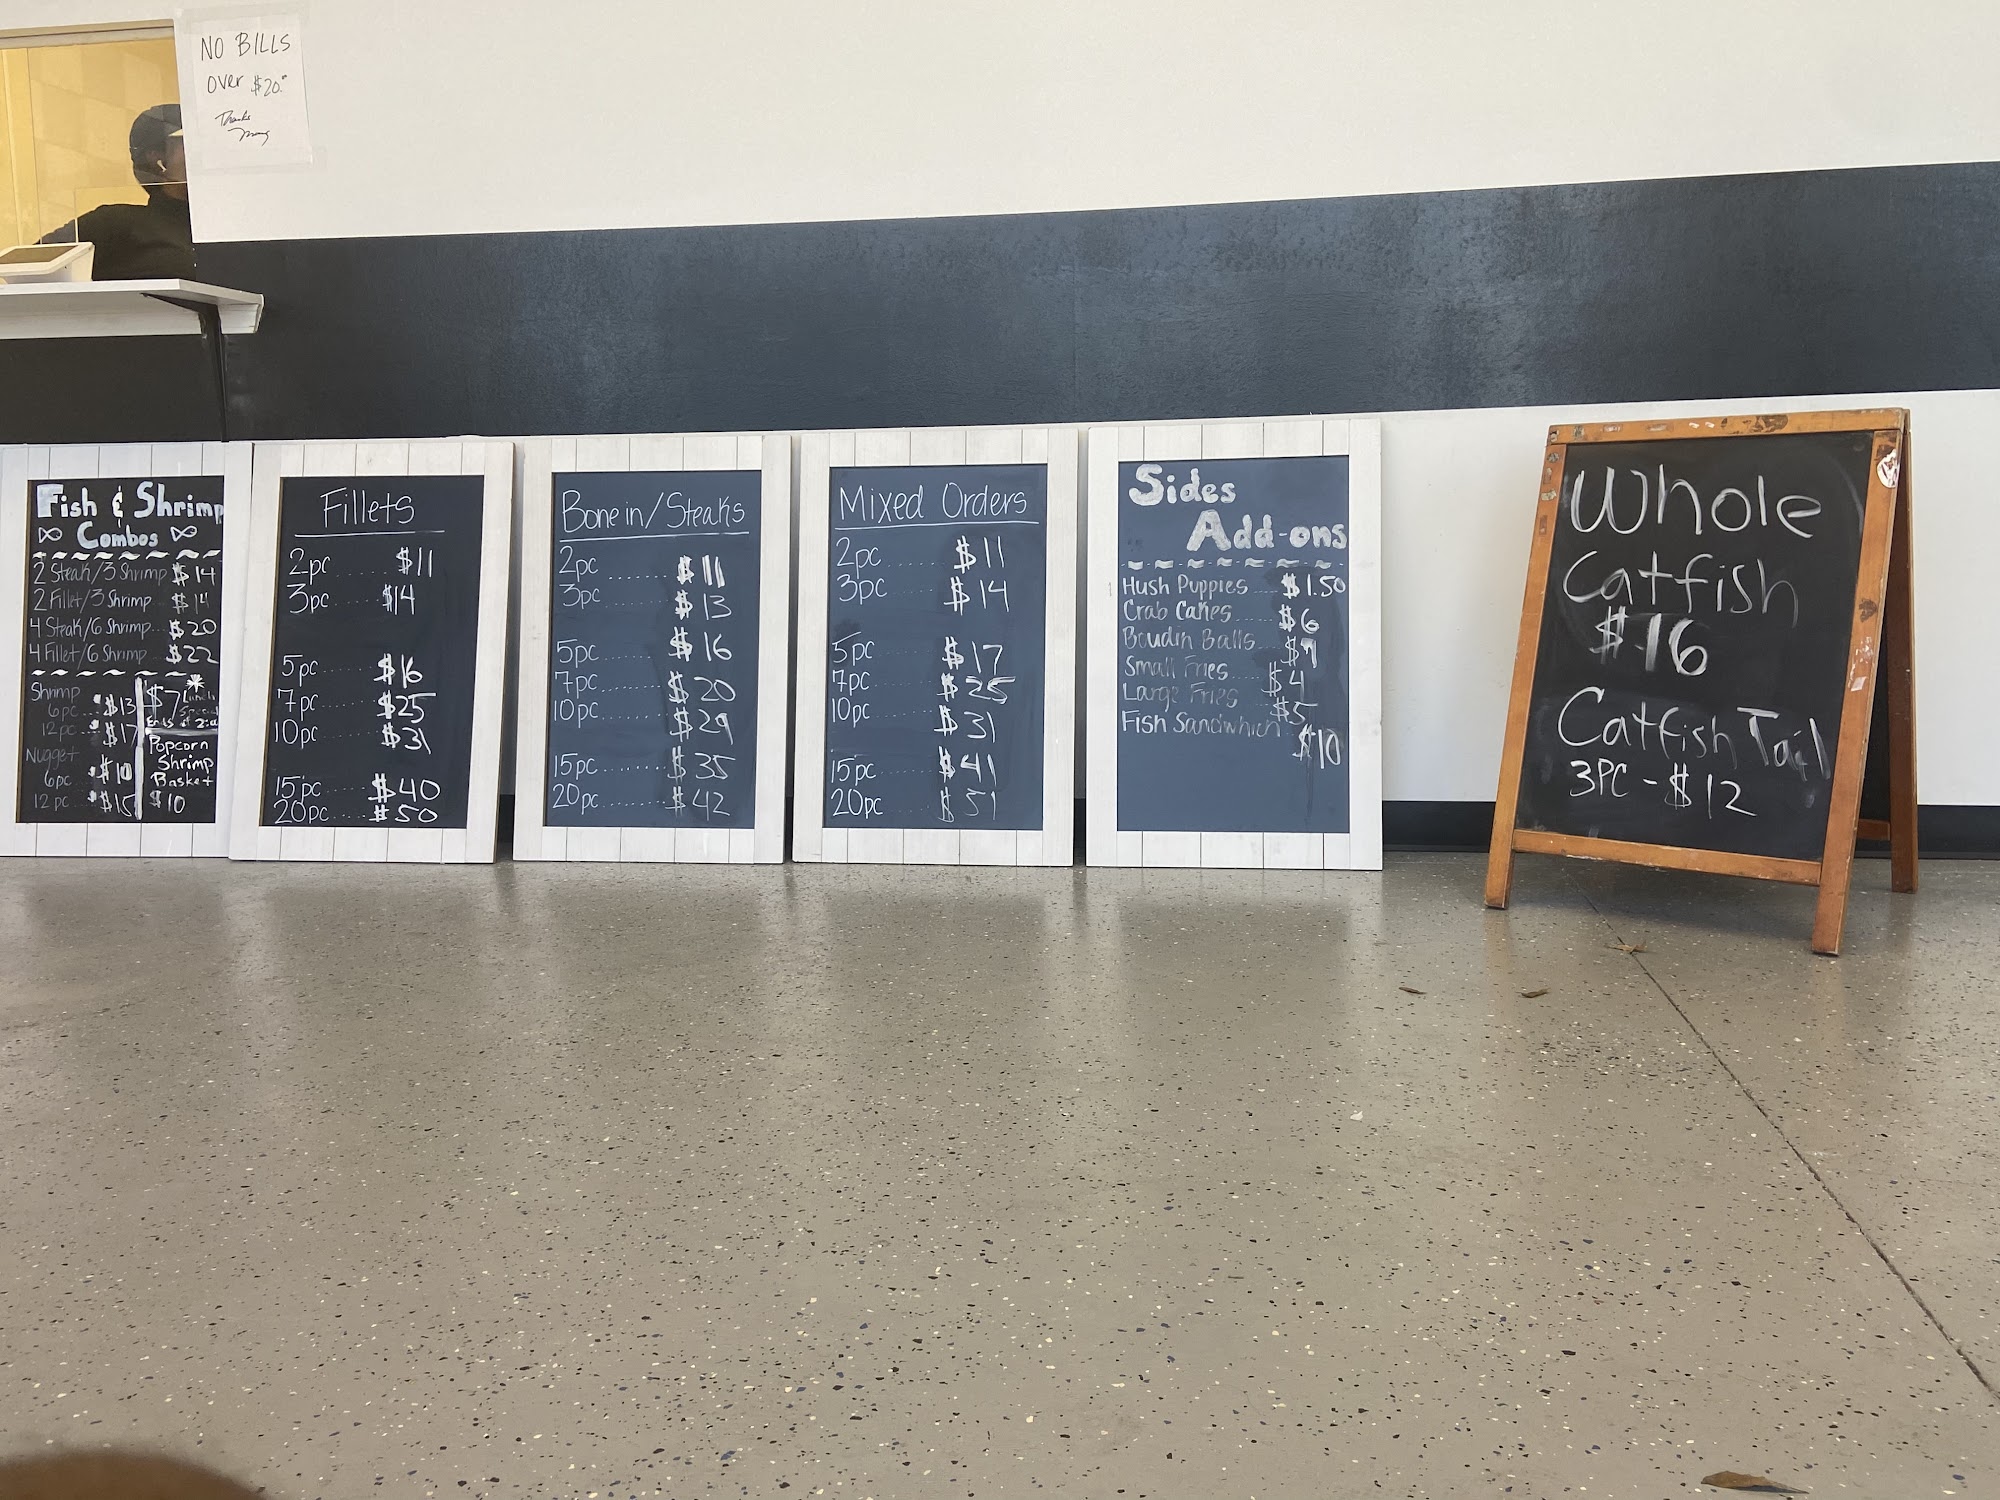 NO BILLS
over $20.00
Thanks
Fish & Shrimp
Combos
2 Steak/3 Shrimp $14
2 Fillet/3 Shrimp $14
4 Steak/6 Shrimp... $20
4 Fillet/6 Shrimp... $22
Shrimp
6pc... $13
12pc... $17
Nugget
6pc $10
12pc... $15
$7 Lunch
Special
Ends at
Popcorn
Shrimp
Basket
$10
Fillets
2pc ........ $11
3pc ........ $14
5pc ........ $16
7pc ........ $25
10pc ........ $31
15pc ........ $40
20pc ........ $50
Bone in/Steaks
2pc ........ $11
3pc ........ $13
5pc ........ $16
7pc ........ $20
10pc ........ $29
15pc ........ $35
20pc ........ $42
Mixed Orders
2pc ........ $11
3pc ........ $14
5pc ........ $17
7pc ........ $25
10pc ........ $31
15pc ........ $41
20pc ........ $51
Sides
Add-ons
Hush Puppies ... $1.50
Crab Cakes ...... $6
Boudin Balls ....
Small Fries ..... $4
Large Fries ..... $5
Fish Sandwhich ... $10
Whole
Catfish
$16
Catfish Tail
3PC - $12